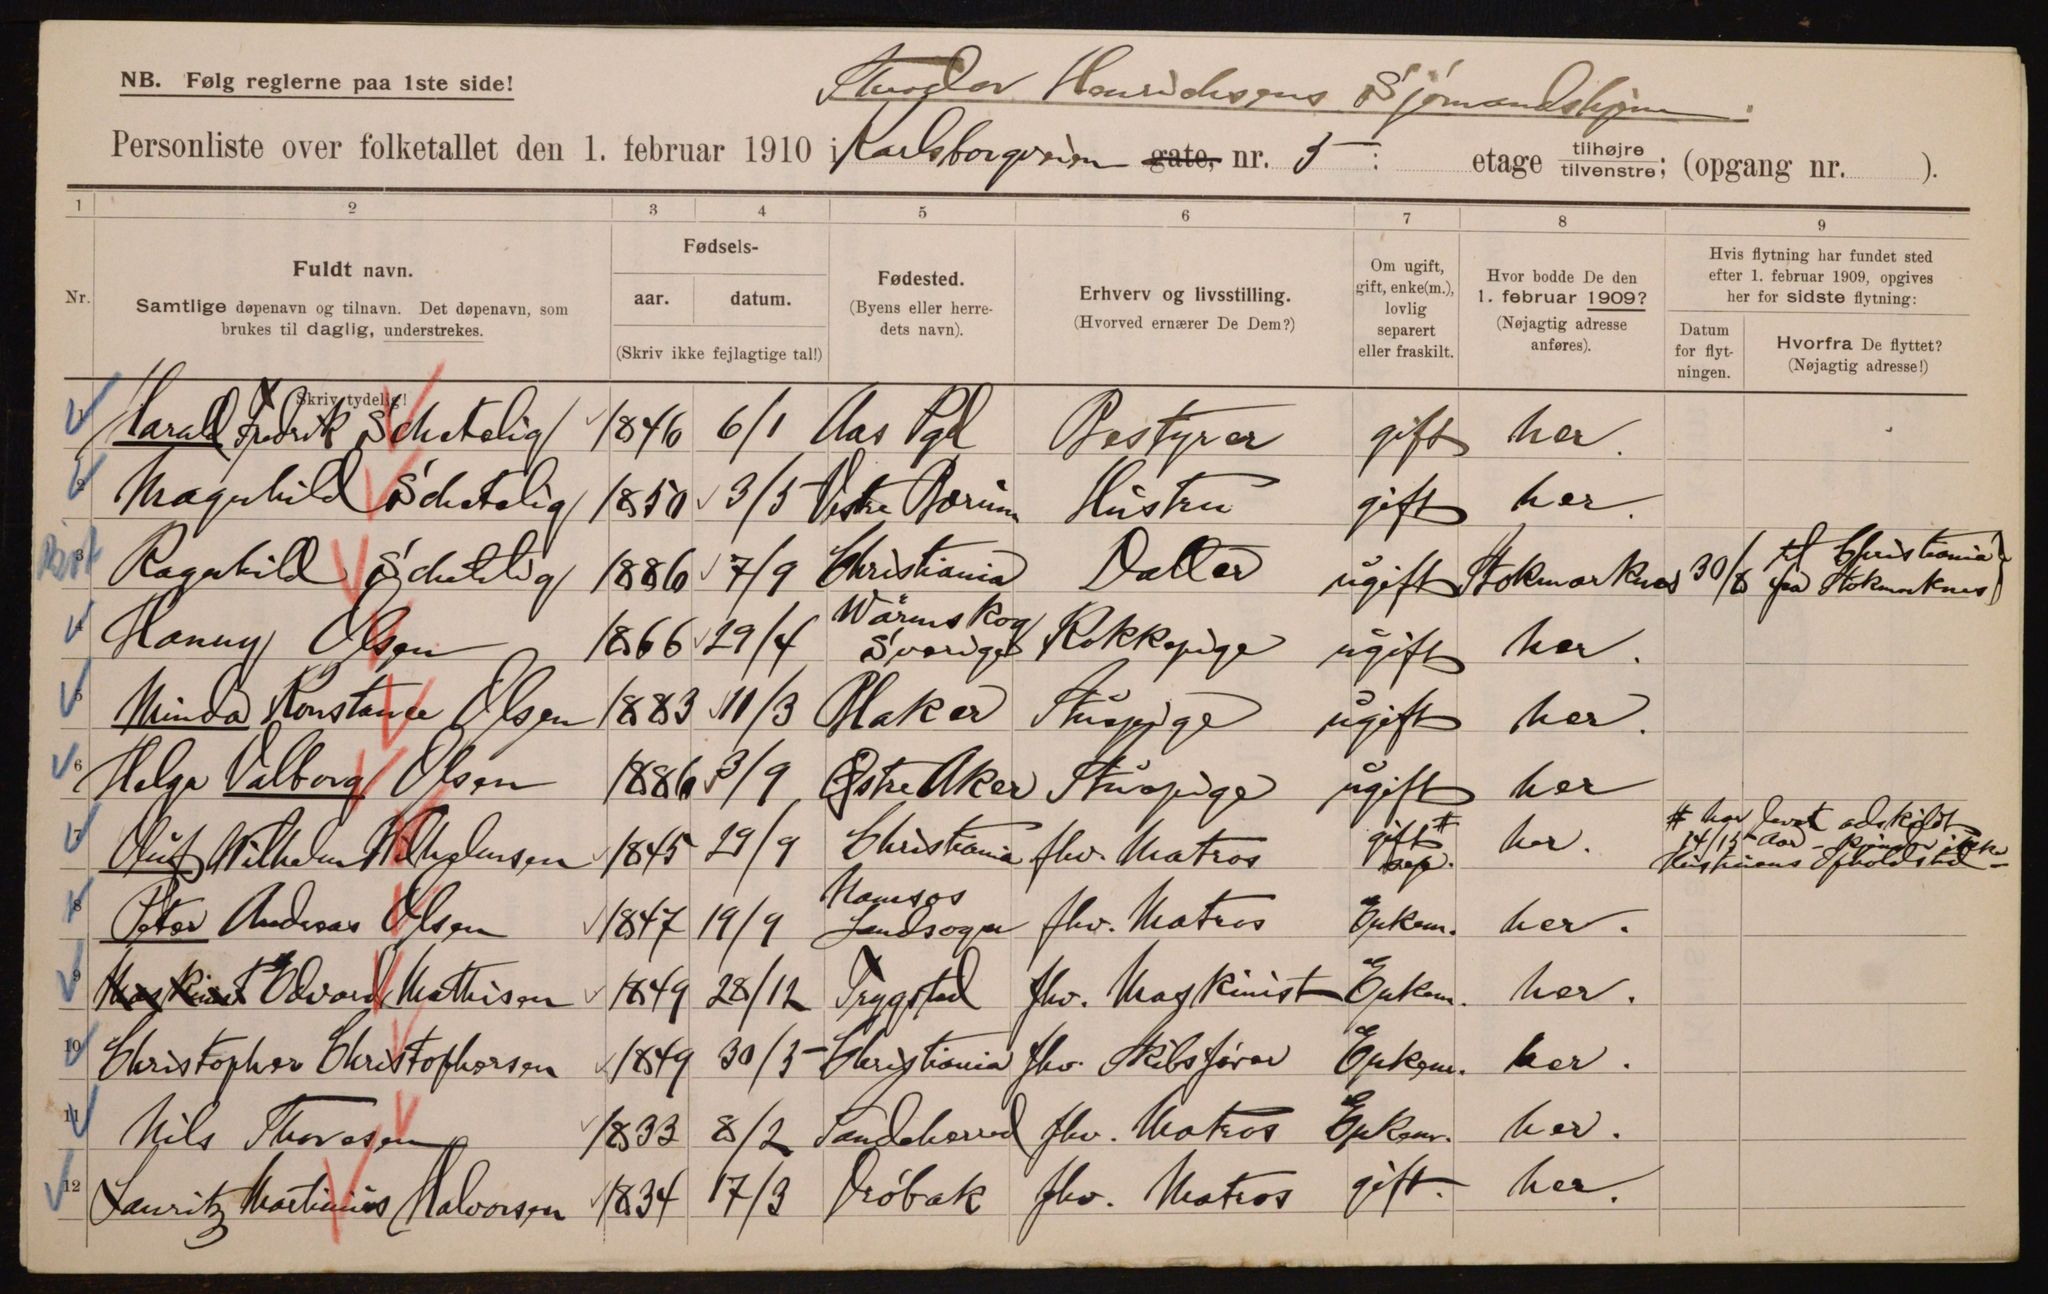 NB. Følg reglerne paa 1ste side!
Theodor Henrichsens Sjømandshjem.
Personliste over folketallet den 1. februar 1910 i Karlsborgveien gate, nr. 5: etage tilhøjre tilvenstre; (opgang nr. ).
1 2 3 4 5 6 7 8 9
Nr.
Fuldt navn.
Samtlige døpenavn og tilnavn. Det døpenavn, som
brukes til daglig, understrekes.
Skriv tydelig!
Fødsels-
aar. datum.
(Skriv ikke fejlagtige tal!)
Fødested.
(Byens eller herre-
dets navn).
Erhverv og livsstilling.
(Hvorved ernærer De Dem?)
Om ugift,
gift, enke(m.),
lovlig
separert
eller fraskilt.
Hvor bodde De den
1. februar 1909?
(Nøjagtig adresse
anføres).
Hvis flytning har fundet sted
efter 1. februar 1909, opgives
her for sidste flytning:
Datum
for flyt-
ningen.
Hvorfra De flyttet?
(Nøjagtig adresse!)
1 Harald Fredrik Schetelig 1846 6/1 Aas Pgl Bestyrer gift her.
2 Magnhild Schetelig 1850 3/5 Vestre Bærum Hustru gift her.
Bort 3 Ragnhild Schetelig 1886 7/9 Christiania Datter ugift Stokmarknes 30/8 til Christiania
fra Stokmarknes
4 Hanny Olsen 1866 29/4 Värmskog
Sverige Kokkepige ugift her.
5 Minda Konstance Olsen 1883 11/3 Blaker Stuepige ugift her.
6 Helga Valborg Olsen 1886 3/9 Østre Aker Stuepige ugift her
7 Oluf Wilhelm Wilhelmsen 1845 29/9 Christiania fhv. Matros gift #
sep. her. # har levet adskildt
14/15 Aar - kjender ikke
Hustruens Opholdsted -
8 Peter Andreas Olsen 1847 19/9 Namsos
Landsogn fhv. Matros Enkem. her.
9 Maskinist Edvard Mathisen 1849 28/12 Trygstad fhv. Maskinist Enkem. her.
10 Christopher Christophersen 1849 30/5 Christiania fhv. Skibsfører Enkem. her.
11 Nils Thoresen 1833 8/2 Sandeherred fhv. Matros Enkem. her.
12 Lauritz Martinius Halvorsen 1834 17/3 Drøbak fhv. Matros gift. her.